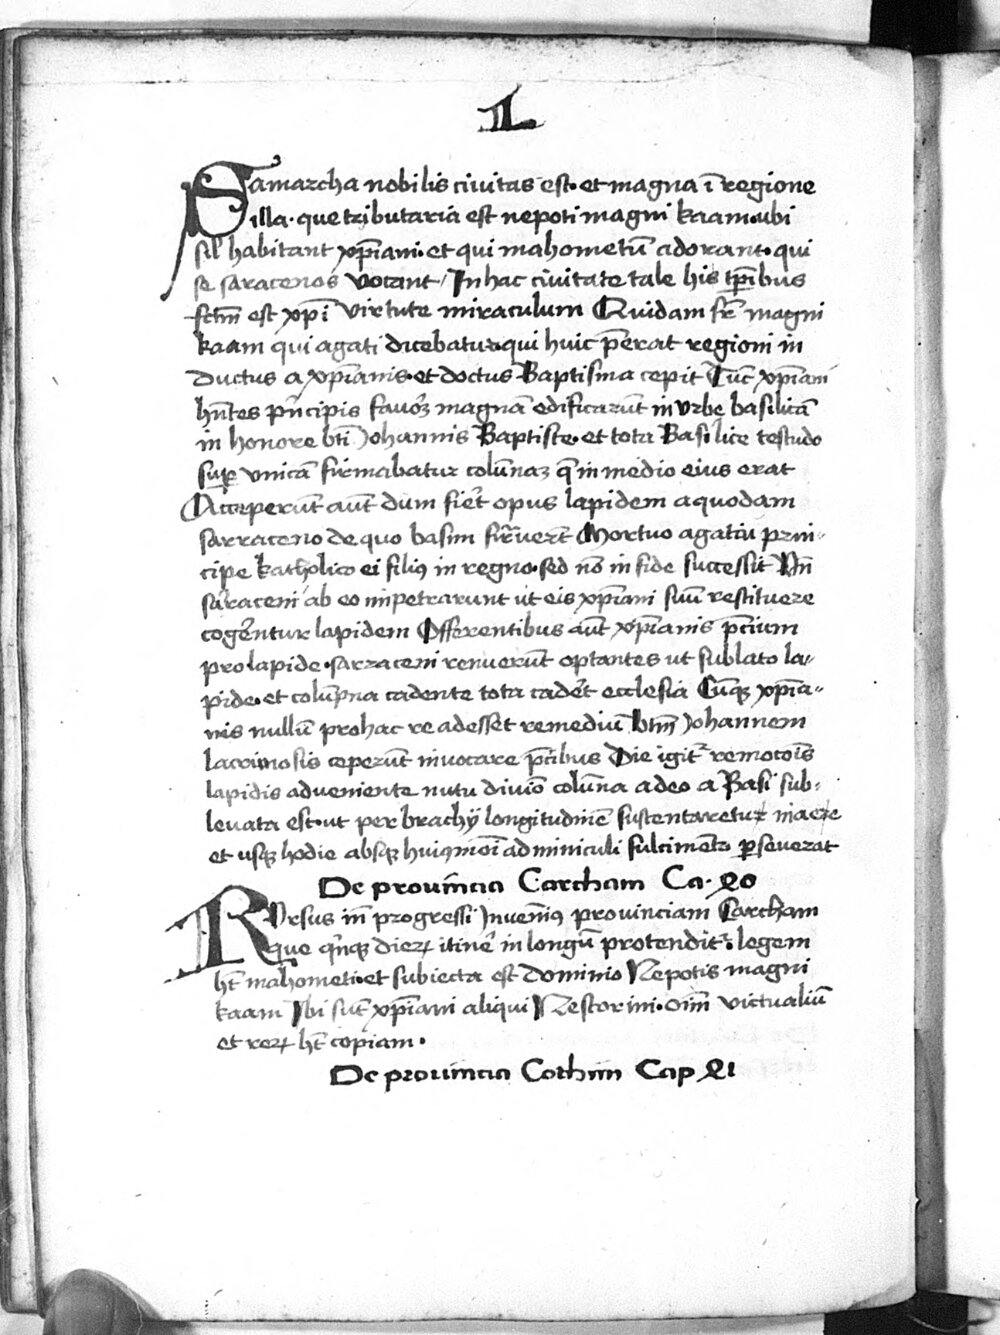 L
Samarcha nobilis ciuitas est. et magna ī regione
illa. que tributaria est nepoti magni kaam. ubi
sil' habitant xp̄iani. et qui mahometū adorant. qui
se saracenos vocant / In hac ciuitate tale his tp̄ibus
fctm̄ est xp̄i virtute miraculum Quidam fr̄ magni
kaam qui agati dicebatur. qui huic p̄erat regioni in
ductus a xp̄ianis. et doctus Baptisma cepit Tūc xp̄iani
hn̄tes pn̄cipis fauoꝝ magnā edificarūt in vrbe basilicā
in honore bti Johannis Baptiste. et tota Basilice testudo
sup̄ vnicā firmabatur colūnaꝫ q̄ in medio eius erat
Acceperūt aūt dum fiēt opus lapidem a quodam
sarraceno de quo basim fir̄uerūt Mortuo agatiū prin-
cipe katholico ei filiꝰ in regno. sed nō in fide successit Nn̄
sarraceni ab eo impetrarunt ut eis xp̄iani suū restituere
cogerentur lapidem Offerentibus aūt xp̄ianis p̄cium
pro lapide. sarraceni renuerūt optantes ut sublato la-
pide. et colūpna cadente tota cadēt ecclesia Cūqꝫ xp̄ia-
nis nullū pro hac re adesset remediū btm̄ Johannem
lacrimosis ceperūt inuocare p̄cibus Die igit̄ remotoīs
lapidis adueniente nutu diuīo colūna adeo a Basi sub-
leuata est. ut per brachÿ longitudinē sustentaretur in aere
et usqꝫ hodie absqꝫ huiꝰmōi adminiculi fulcimento ꝑseuerat
De prouincia Carcham Ca. 40
RVrsus in progressi Inuenimꝰ prouinciam Carcham
que qn̄qꝫ dieꝝ itinē in longū protendit̄. legem
ht̄ mahometi. et subiecta est dominio Nepotis magni
kaam Ibi sūt xp̄iani aliqui Nestorini. oīm victualiū
et reꝝ ht̄ copiam.
De prouincia Cothim Cap 41